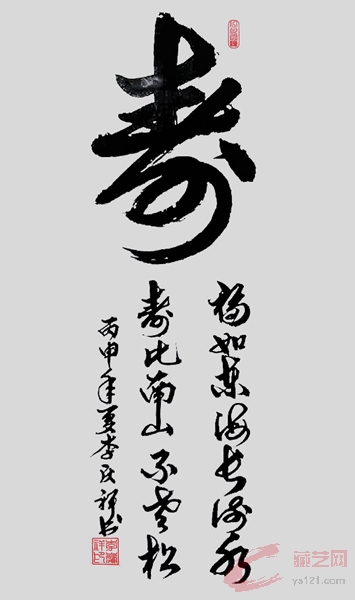 寿
福如东海长流水
寿比南山不老松
丙申年夏李庆祥书
藏艺网
ys121.com